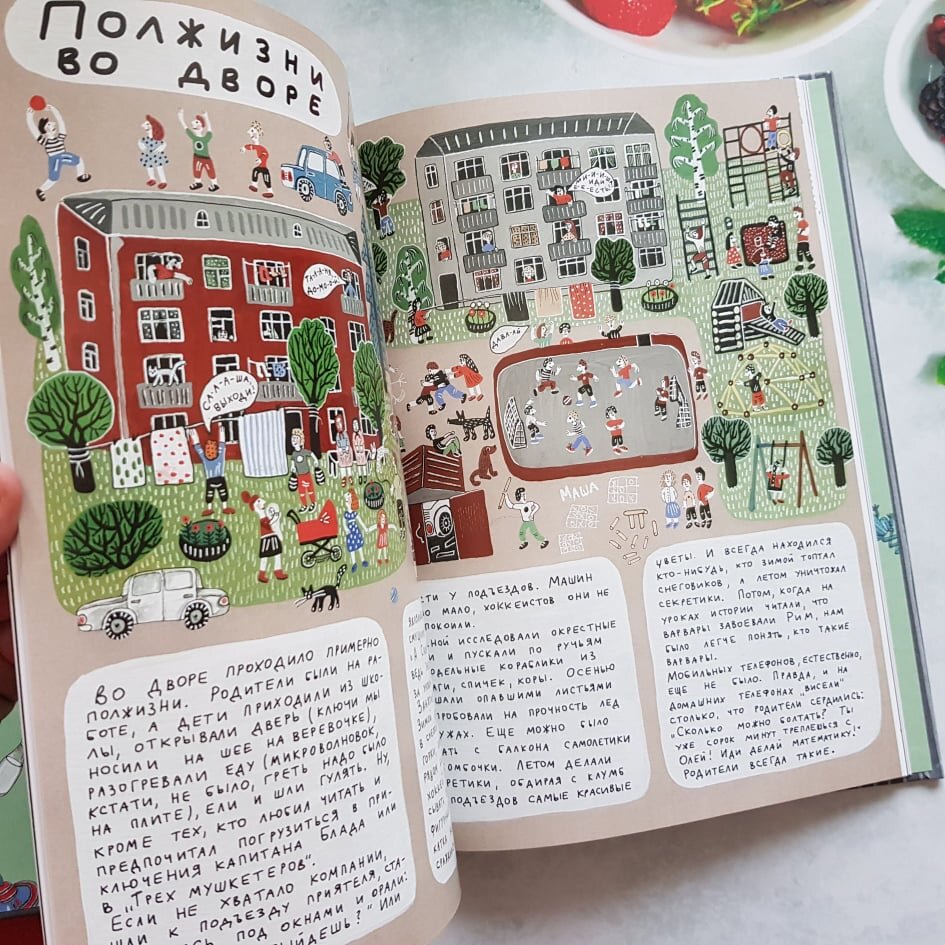 Полжизни
во дворе
Та-а-ня,
до-мо-ой!
Са-а-ша,
выходи!
Давай-ай
Маша
Во дворе проходило примерно
полжизни. Родители были на ра-
боте, а дети приходили из шко-
лы, открывали дверь (ключи мы
носили на шее на веревочке),
разогревали еду (микроволновок,
кстати, не было, греть надо было
на плите), ели и шли гулять. Ну,
кроме тех, кто любил читать и
предпочитал погрузиться в при-
ключения капитана Блада или
в „Трех мушкетеров“.
Если не хватало компании,
шли к подъезду приятеля, ста-
под окнами и орали:
выйдешь?“ Или
сти у подъездов. Машин
мало, хоккеистов они не
исследовали окрестные
и пускали по ручьям
кораблики из
спичек, коры. Осенью
опавшими листьями
пробовали на прочность лед
Еще можно было
с балкона самолетики
Летом делали
обдирая с клумб
подъездов самые красивые
цветы. И всегда находился
кто-нибудь, кто зимой топтал
снеговиков, а летом уничтожал
секретики. Потом, когда на
уроках истории читали, что
варвары завоевали Рим, нам
было легче понять, кто такие
варвары.
Мобильных телефонов, естественно,
еще не было. Правда, и на
домашних телефонах „висели“
столько, что родители сердились:
„Сколько можно болтать? Ты
уже сорок минут треплешься с
Олей! Иди делай математику!“
Родители всегда такие.